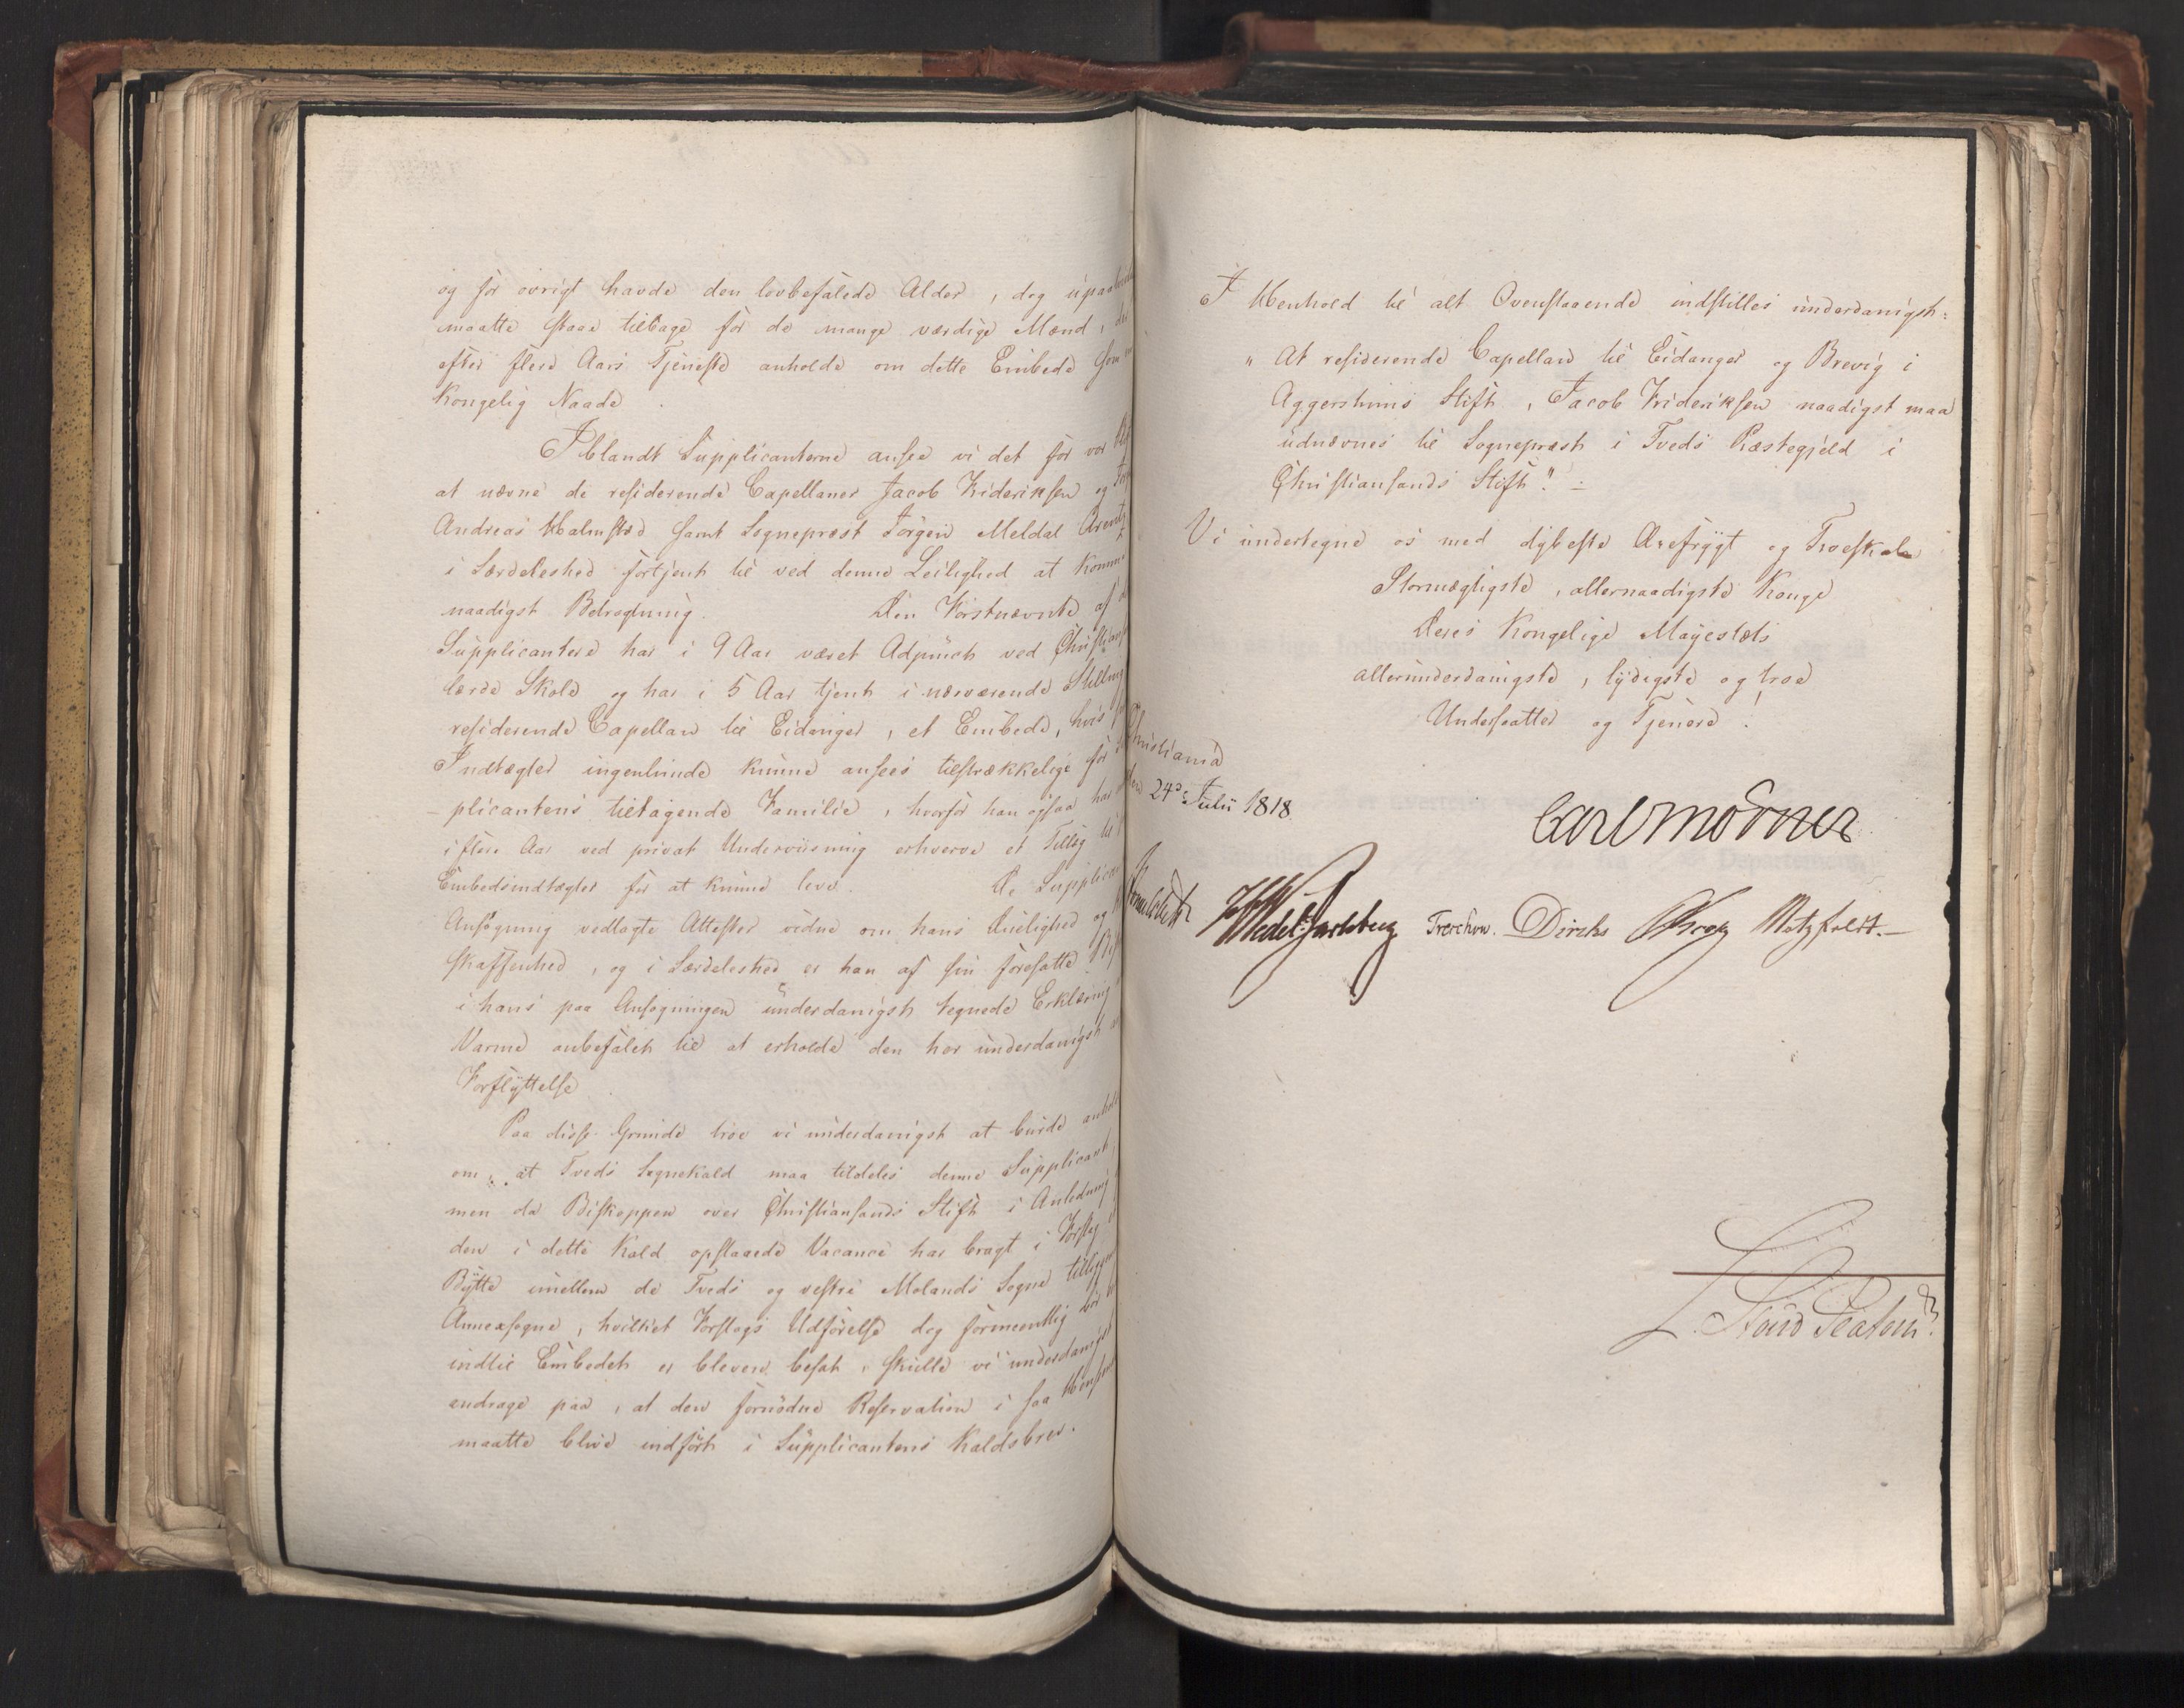 og for øvrigt havde den lovbefalede Alder, dog
maatte staae tilbage for de mange værdige Mænd,
efter flere Aars Tjeneste anholde om dette Embede
Kongelig Naade.
Iblandt Supplicanterne ansee vi det for vor
at nævne de residerende Capellaner Jacob Frideriksen og
Andreas Halmsted samt Sognepræst Jørgen Meldal
i Særdeleshed fortjent til ved denne Leilighed at komme
naadigst Betragtning. Den Førstnævnte af
Supplicantere har i 9 Aar været Adjunct ved
lærde Skole og har i 5 Aar tjent i nærværende
residerende Capellan til Eidanger, et Embede, hvis
Indtægter ingenlunde kunne ansees tilstrækkelige for
-plicantens tiltagende Familie, hvorfor han ogsaa har
i flere Aar ved privat Underviisning erhverve et Tillæg til
Embedsindtægter for at kunne leve. De
Ansøgning vedlagte Attester vidne om hans Duelighed og
skaffenhed, og i Særdeleshed er han af sin foresatte
i hans paa Ansøgningen underdanigst tegnede Erklæring
Varme anbefalet til at erholde den her underdanigst
Forflyttelse.
Paa disse Grunde troe vi underdanigst at burde
om, at Tveds Sognekald maa tildeles denne Supplicant,
men da Biskoppen over Christiansands Stift i Anledning
den i dette Kald opstaaede Vacance har bragt i Forslag
Bytte imellem de Tveds og vestre Molands Sogne
Annexsogne, hvilket Forslags Udførelse dog formeentlig bør
indtil Embedet er bleven besat, skulle vi underdanigst
andrage paa, at den fornødne Reservation i saa
maatte blive indført i Supplicantens Kaldsbrev.
I Henhold til alt Ovenstaaende indstilles underdanigst:
"At residerende Capellan til Eidanger og Brevig i
Aggershuus Stift, Jacob Frideriksen naadigst maa
udnævnes til Sognepræst i Tveds Præstegjeld i
Christiansands Stift".
Vi undertegne os med dybeste Ærefrygt og Troeskab
Stormægtigste, allernaadigste Konge
Deres Kongelige Mayestæts
allerunderdanigste, lydigste og troe
Undersaatter og Tjenere!
Christiania
den 24de Julii 1818.
Carl Mörner
Sommerhielm Wedel Jarlsberg Treschow. Diriks Krog Motzfeldt.